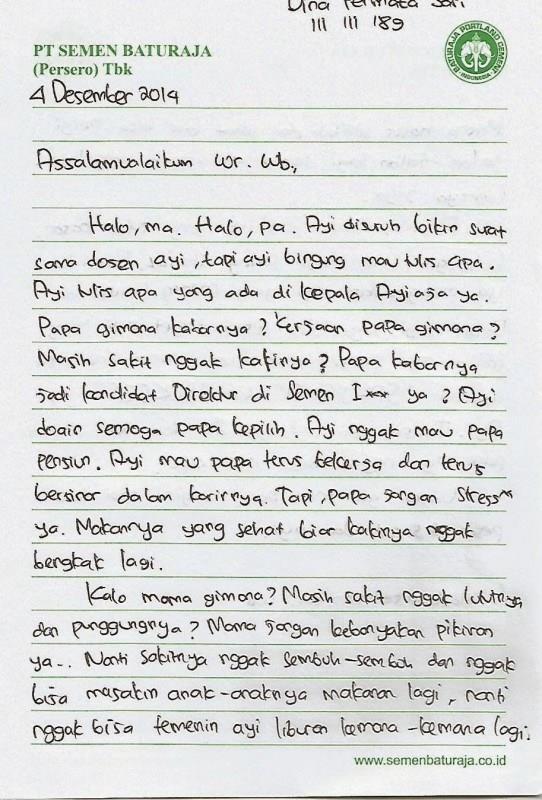 Dina Permata Sari
111 111 189
PT SEMEN BATURAJA
(Persero) Tbk
BATURAJA PORTLAND CEMENT
INDONESIA
4 Desember 2014
Assalamualaikum Wr. Wb.,
Halo, ma. Halo, pa. Ayi disuruh bikin surat
sama dosen ayi, tapi ayi bingung mau tulis apa.
Ayi tulis apa yang ada di kepala Ayi aja ya.
Papa gimana kabarnya? Kerjaan papa gimana?
Masih sakit nggak kakinya? Papa kabarnya
jadi kandidat Direktur di Semen I*** ya? Ayi
doain semoga papa kepilih. Ayi nggak mau papa
pensiun. Ayi mau papa terus bekerja dan terus
bersinar dalam karirnya. Tapi, papa jangan stress"
ya. Makannya yang sehat biar kakinya nggak
bengkak lagi.
Kalo mama gimana? Masih sakit nggak lututnya
dan punggungnya? Mama jangan kebanyakan pikiran
ya... Nanti sakitnya nggak sembuh-sembuh dan nggak
bisa masakin anak-anaknya makanan lagi, nanti
nggak bisa temenin ayi liburan kemana-kemana lagi.
www.semenbaturaja.co.id